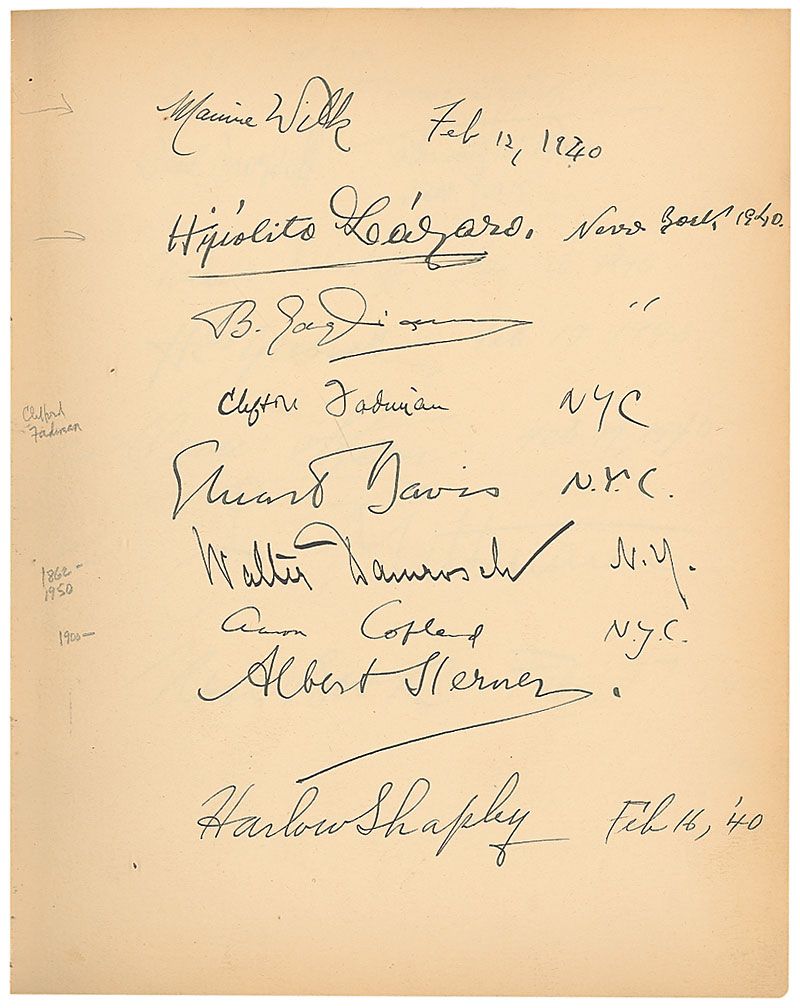 Wilk Feb 12, 1940
Hipólito Lázaro. New York 1940.
B. "
Clifton Fadiman NYC
Clifford
Fadiman
Stuart Davis N.Y.C.
Walter Damrosch N.Y.
1862-
1950
Aaron Copland N.Y.C.
1900-
Albert Sterner.
Harlow Shapley Feb 16, '40